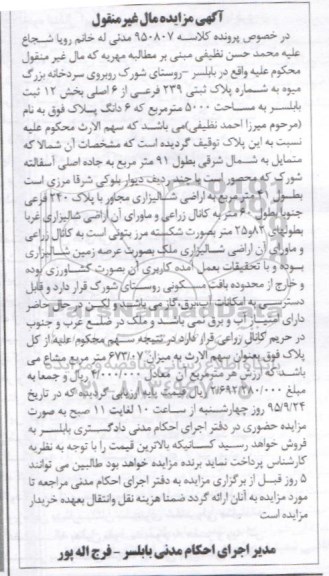 آگهی مزایده مال غیر منقول
در خصوص پرونده کلاسه ۹۵۰۸۰۷ مدنی له خانم رویا شجاع
علیه محمد حسن نظیفی مبنی بر مطالبه مهریه که مال غیر منقول
محکوم علیه واقع در بابلسر -روستای شورک روبروی سردخانه بزرگ
میوه به شماره پلاک ثبتی ۲۳۹ فرعی از ۶ اصلی بخش ۱۲ ثبت
بابلسر به مساحت ۵۰۰۰ مترمربع که ۶ دانگ پلاک فوق به نام
(مرحوم میرزا احمد نظیفی)می باشد که سهم الارث محکوم علیه
نسبت به این پلاک توقیف گردیده است که مشخصات آن شمالا که
متمایل به شمال شرقی بطول ۹۱ متر مربع به جاده اصلی آسفالته
شورک که محصور است با چند ردیف دیوار بلوکی شرقا مرزی است
بطول متر مربع به اراضی شالیزاری مجاور با پلاک ۲۴۰ فرعی
جنوبا بطول ۶۰ متر به کانال زراعی و ماورای آن اراضی شالیزاری غربا
بطولهای ۲۵و۸۲ متر بصورت شکسته مرز بتونی است به کانال زراعی
و ماورای آن اراضی شالیزاری ملک بصورت عرصه زمین شالیزاری
بوده و با تحقیقات بعمل آمده کاربری آن بصورت کشاورزی بوده
و خارج از محدوده بافت مسکونی روستای شورک قرار دارد و قابل
دسترسی به امکانات آب،برق،گاز می باشد و لکن در حال حاضر
دارای امتیاز آب و برق نمی باشد و ملک در ضلع غرب و جنوب
در حریم کانال زراعی قرار دارد در نتیجه سهم محکوم علیه از کل
پلاک فوق بعنوان سهم الارث به میزان ۶۷۳/۰۷ متر مربع مشاع می
باشد که ارزش هر مترمربع آن معادل ۴/۰۰۰/۰۰۰ ریال و جمعا به
مبلغ ۲/۶۹۲/۲۸۰/۰۰۰ ریال قیمت پایه ارزیابی گردیده که در تاریخ
۹۵/۹/۲۴ روز چهارشنبه از ساعت ۱۰ لغایت ۱۱ صبح به صورت
مزایده حضوری در دفتر اجرای احکام مدنی دادگستری بابلسر به
فروش خواهد رسید کسانیکه بالاترین قیمت را با توجه به نظریه
کارشناس پرداخت نماید برنده مزایده خواهد بود طالبین می توانند
۵ روز قبل از برگزاری مزایده به دفتر اجرای احکام مدنی مراجعه تا
مورد مزایده به آنان ارائه گردد ضمنا هزینه نقل وانتقال بعهده خریدار
مزایده است
مدیر اجرای احکام مدنی بابلسر - فرج اله پور